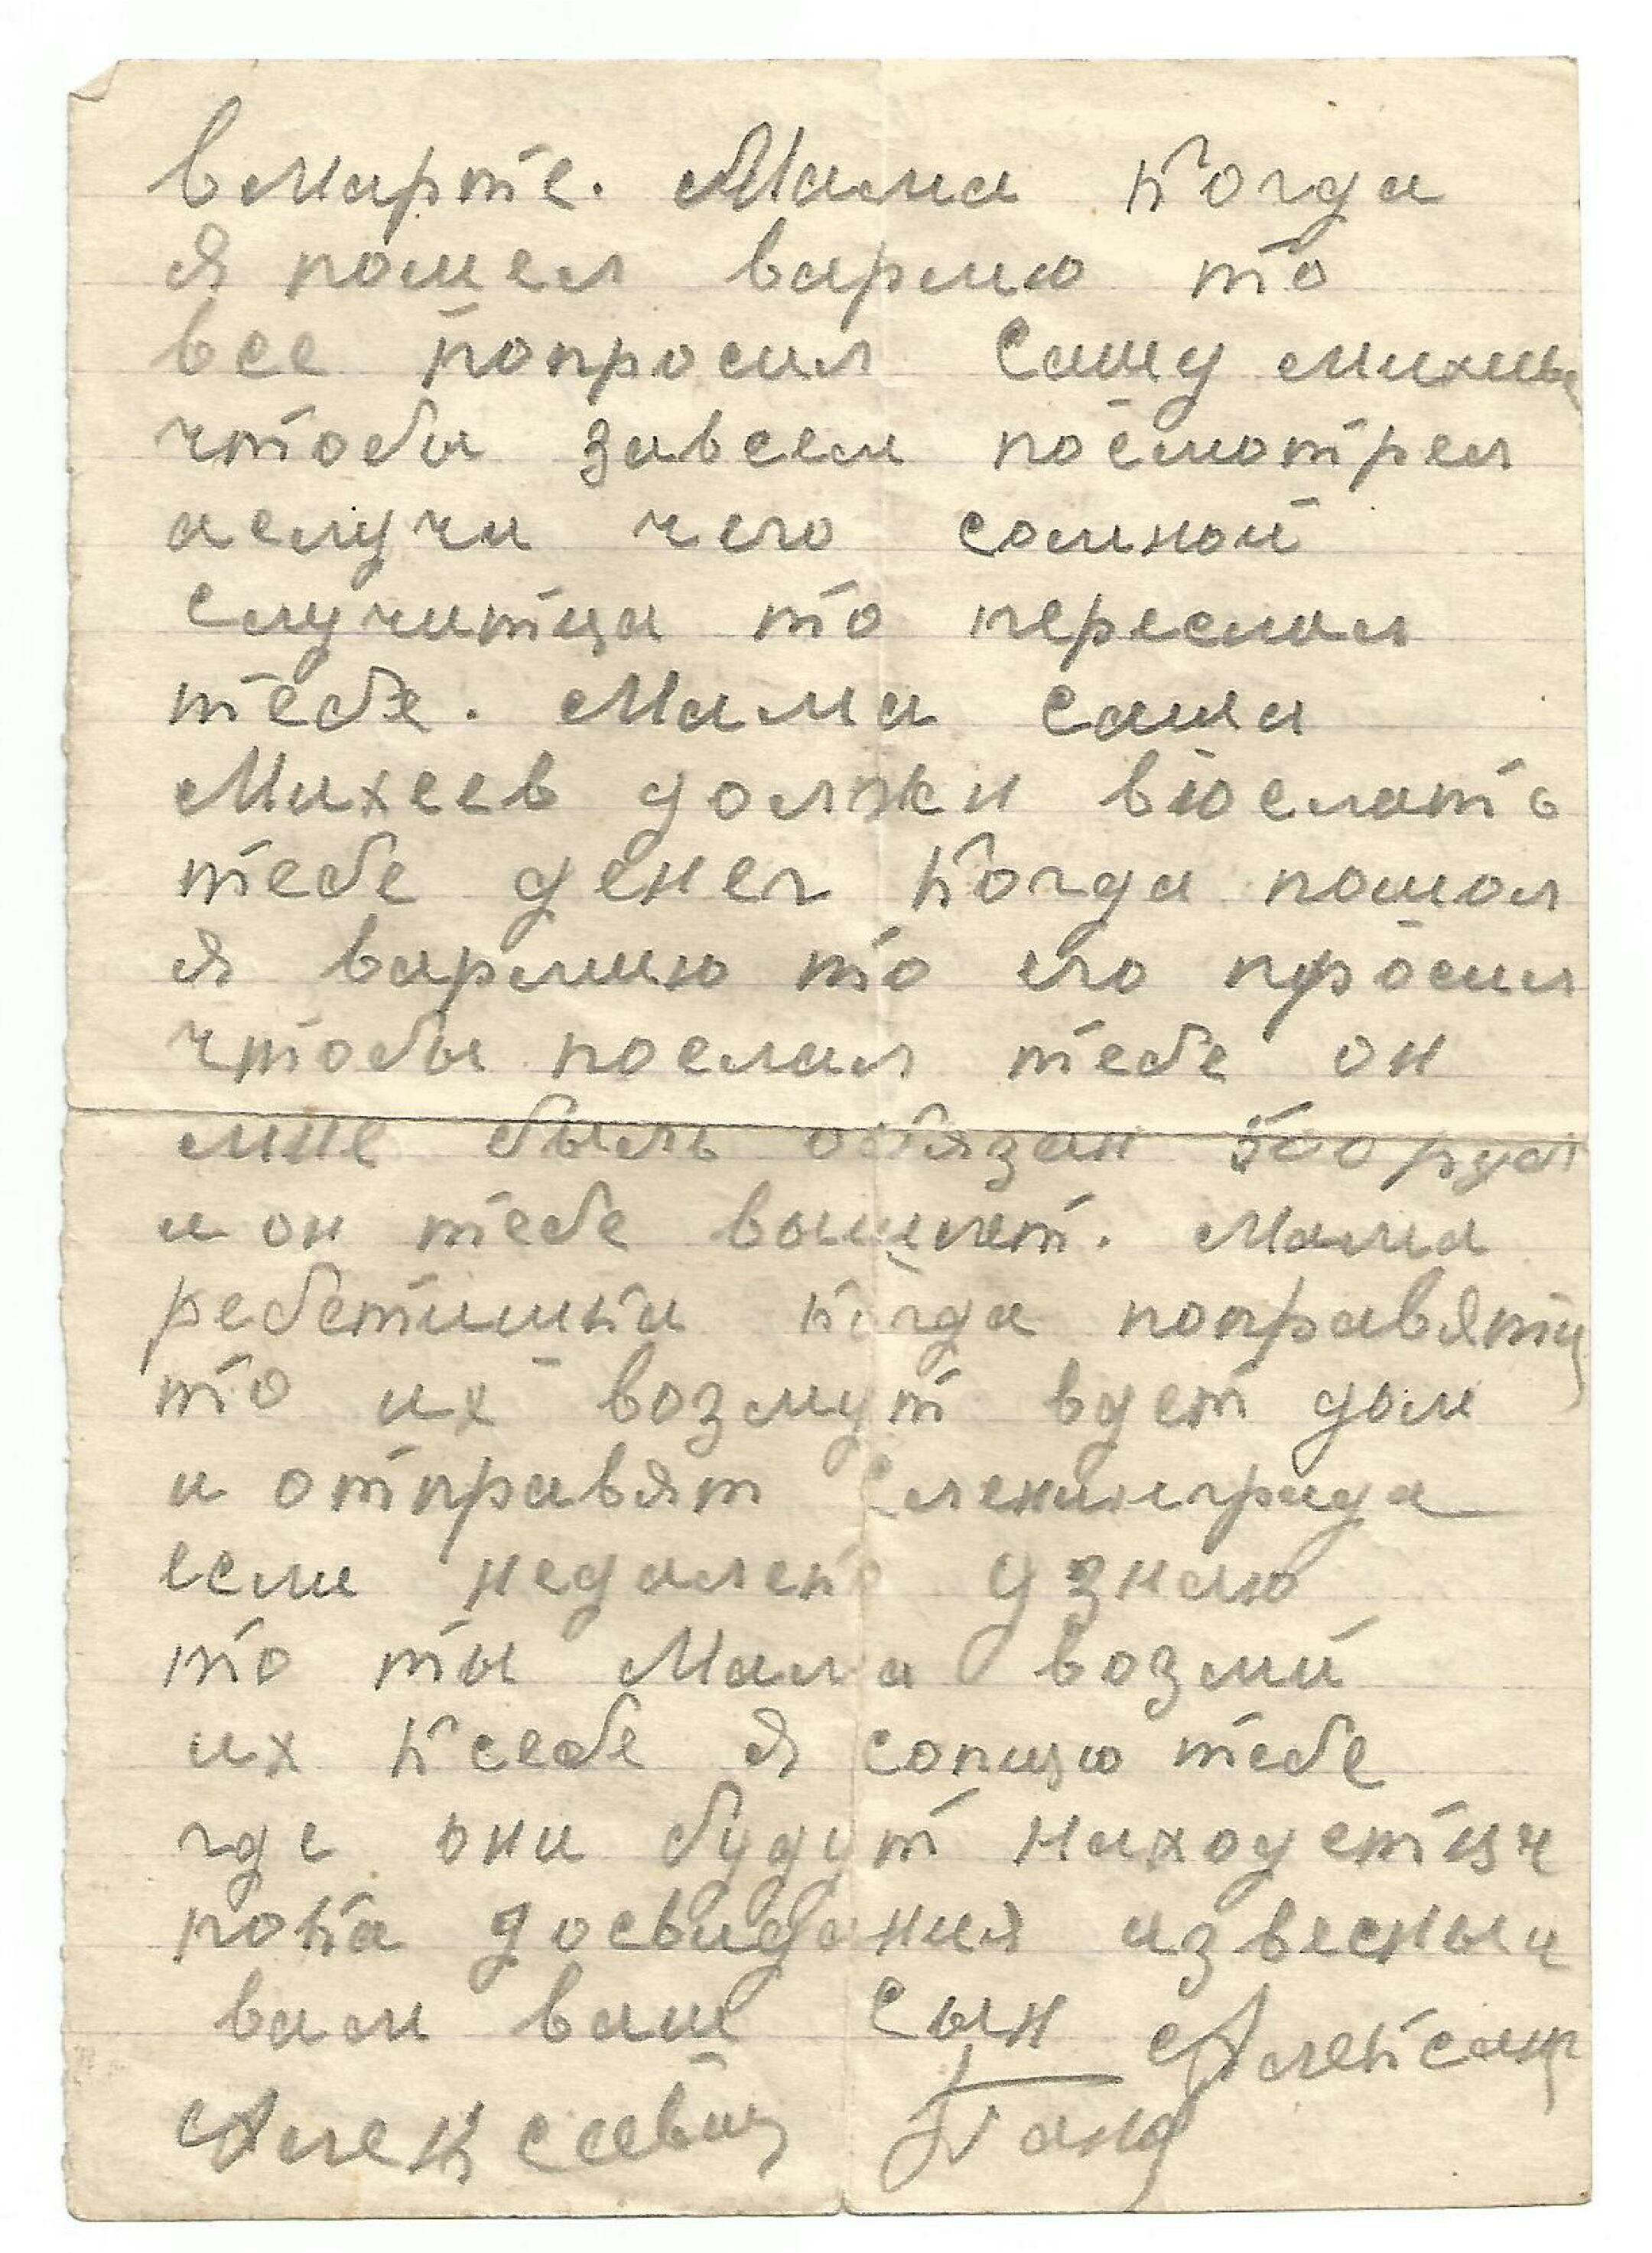 вмарте. Мама когда
я пошел вармю то
все попросил Сашу
чтобы завсем посмотрел
аслучи чего сомной
случитца то переслал
тебе. Мама Саша
Михеев должен выслать
тебе денег когда пошол
я вармию то его просил
чтобы послал тебе он
мне быль обязан 500 руб
и он тебе вышлет. Мама
ребетишки когда поправятц
то их возмут вдет дом
и отправят Сленинграда
если недалеко узнаю
то ты Мама возми
их ксебе я сопщю тебе
где они будут находетцы
пока досвидания извесный
вам ваш Сын Александ
Алексеевич